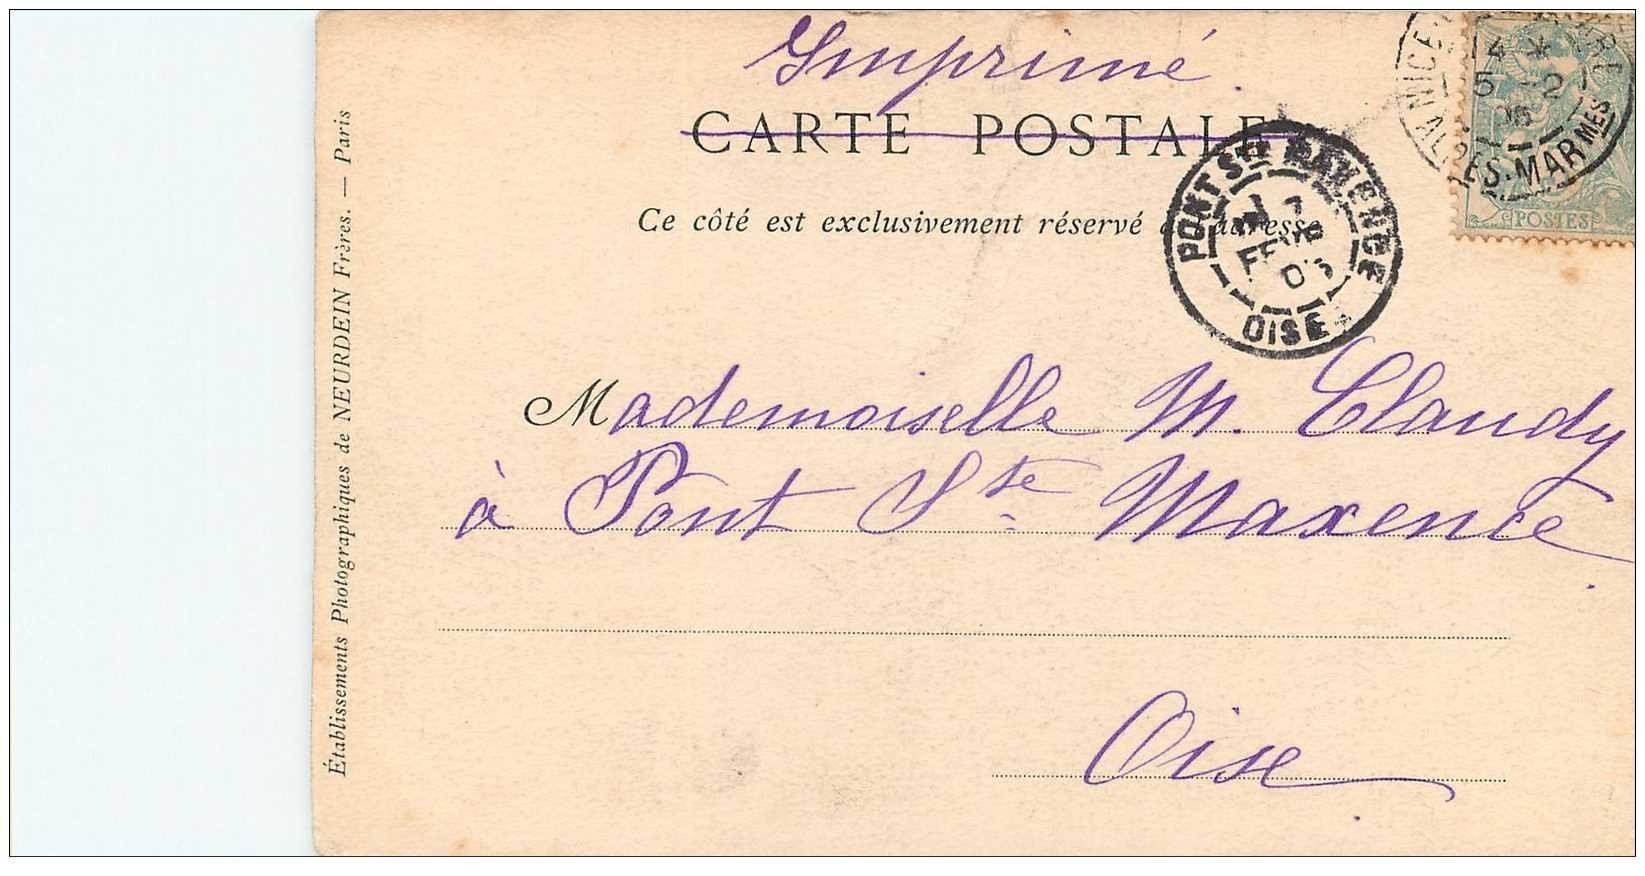 Imprimé.
CARTE POSTALE
Ce côté est exclusivement réservé à l'adresse
PONT STE MAXENCE
7
FEVR
OISE
NICE
14 *
5 -2
ALPES-MARMES
POSTES
Mademoiselle M. Claudy
à Pont Ste Maxence.
Oise.
Établissements Photographiques de NEURDEIN Frères. — Paris